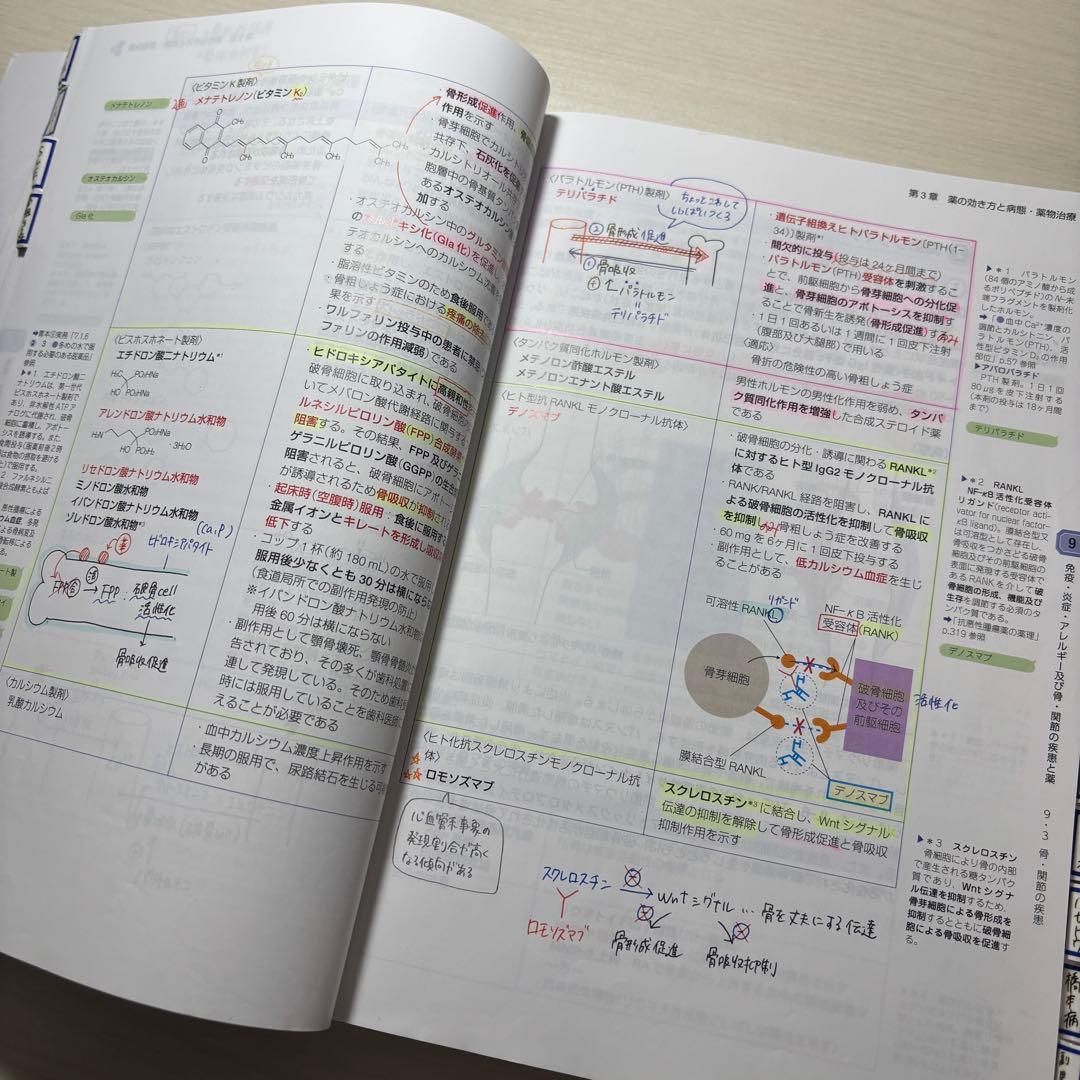 〈ビタミンK製剤〉
メナテトレノン(ビタミンK₂)
メナテトレノン
オステオカルシン
Gla化
CH₃
CH₃
CH₃
CH₃
CH₃
CH₃
O
O
・骨形成促進作用、
作用を示す
・骨芽細胞でカルシトリ
共存下、石灰化を促進
・カルシトリオール共存
胞層中の骨基質タンパ
あるオステオカルシン
加する
・オステオカルシン中のグルタミン
キシ化(Gla化)を促進し
テオカルシンへのカルシウム
する
・脂溶性ビタミンのため食後服用で
・骨粗しょう症における疼痛の
果を示す
・ワルファリン投与中の患者に禁忌
ファリンの作用減弱)である
〈ビスホスホネート製剤〉
エチドロン酸ナトリウム*¹
アレンドロン酸ナトリウム水和物
リセドロン酸ナトリウム水和物
ミノドロン酸水和物
イバンドロン酸ナトリウム水和物
ゾレドロン酸水和物*²
H₃C
PO₃HNa
HO
PO₃HNa
H₂N
PO₃HNa
HO
PO₃H₂
・3H₂O
(Ca,P)
ヒドロキシアパタイト
薬
FPP合
活
FPP
破骨cell
活性化
骨吸収促進
・ヒドロキシアパタイトに高親和性
破骨細胞に取り込まれ、破骨細胞
いてメバロン酸代謝経路に関与する
ルネシルピロリン酸(FPP)合成酵素
阻害する。その結果、FPP及びゲラ
ゲラニルピロリン酸(GGPP)の生合成
阻害されると、破骨細胞にアポトー
が誘導されるため骨吸収が抑制され
・起床時(空腹時)服用:食後に服用する
金属イオンとキレートを形成し吸収
低下する
・コップ1杯(約180mL)の水で服用
服用後少なくとも30分は横にならない
(食道局所での副作用発現の防止)
※イバンドロン酸ナトリウム水和物
用後60分は横にならない
・副作用として顎骨壊死、顎骨骨髄炎
告されており、その多くが歯科処置
連して発現している。そのため歯科
時には服用していることを歯科医師
えることが必要である
〈カルシウム製剤〉
乳酸カルシウム
・血中カルシウム濃度上昇作用を示す
・長期の服用で、尿路結石を生じる可
がある
第3章 薬の効き方と病態・薬物治療
〈パラトルモン(PTH)製剤〉
テリパラチド
②骨形成促進
①骨吸収
⊕↑パラトルモン
テリパラチド
・遺伝子組換えヒトパラトルモン〔PTH(1-
34)〕製剤*¹
・間欠的に投与(投与は24ヶ月間まで)
・パラトルモン(PTH)受容体を刺激するこ
とで、前駆細胞から骨芽細胞への分化促
進と、骨芽細胞のアポトーシスを抑制す
ることで骨新生を誘発(骨形成促進)する
・1日1回あるいは1週間に1回皮下注射
(腹部及び大腿部)で用いる
〈適応〉
骨折の危険性の高い骨粗しょう症
〈タンパク質同化ホルモン製剤〉
メテノロン酢酸エステル
メテノロンエナント酸エステル
男性ホルモンの男性化作用を弱め、タンパ
ク質同化作用を増強した合成ステロイド薬
である
〈ヒト型抗RANKLモノクローナル抗体〉
デノスマブ
・破骨細胞の分化・誘導に関わるRANKL*²
に対するヒト型IgG2モノクローナル抗
体である
・RANK/RANKL経路を阻害し、RANKLに
よる破骨細胞の活性化を抑制して骨吸収
を抑制し骨粗しょう症を改善する
・60mgを6ヶ月に1回皮下投与する
・副作用として、低カルシウム血症を生じ
ることがある
リガンド
可溶性RANKL
NF-κB活性化
受容体(RANK)
骨芽細胞
破骨細胞
及びその
前駆細胞
活性化
膜結合型RANKL
デノスマブ
〈ヒト化抗スクレロスチンモノクローナル抗
体〉
ロモソズマブ
・スクレロスチン*³に結合し、Wntシグナル
伝達の抑制を解除して骨形成促進と骨吸収
抑制作用を示す
心血管系事象の
発現割合が高く
なる傾向がある
スクレロスチン
Wntシグナル…骨を丈夫にする伝達
ロモソズマブ
骨形成促進
骨吸収抑制
▶*1 パラトルモン
(84個のアミノ酸から成
るポリペプチド)のN-末
端フラグメントを製剤化
したホルモン。
▶アバロパラチド
PTH製剤。1日1回
80μgを皮下注射する
(本剤の投与は18ヶ月間
まで)
テリパラチド
▶*2 RANKL
NF-κB活性化受容体
リガンド(receptor acti-
vator for nuclear factor-
κB ligand)。膜結合型又
は可溶型として存在し、
骨吸収をつかさどる破骨
細胞及びその前駆細胞の
表面に発現する受容体で
あるRANKを介して破
骨細胞の形成、機能及び
生存を調節する必須のタ
ンパク質である。
➡「抗悪性腫瘍薬の薬理」
p.319参照
デノスマブ
9
免疫・炎症・アレルギー及び骨・関節の疾患と薬
9・3 骨・関節の疾患
▶*3 スクレロスチン
骨細胞により骨の内部
で産生される糖タンパク
質であり、Wntシグナ
ル伝達を抑制するため、
骨芽細胞による骨形成を
抑制するとともに破骨細
胞による骨吸収を促進す
る。
橋本病